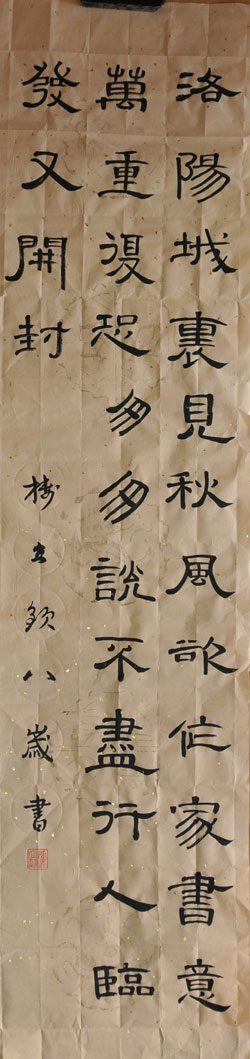 洛陽城裏見秋風欲作家書意
萬重復恐匆匆說不盡行人臨
發又開封
八歲書